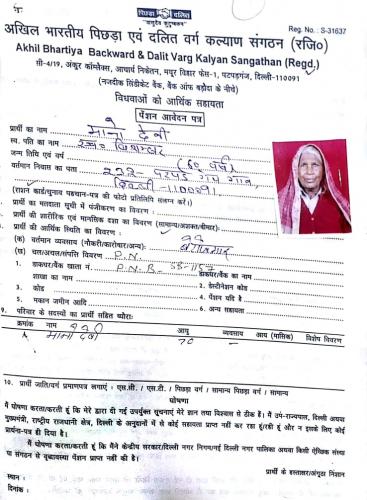 पिछड़ा दलित
"वसुधैव कुटुम्बकम्"
Reg. No. : S-31637
अखिल भारतीय पिछड़ा एवं दलित वर्ग कल्याण संगठन (रजि०)
Akhil Bhartiya Backward & Dalit Varg Kalyan Sangathan (Regd,)
सी-4/19, अंकुर कॉम्लैक्स, आचार्य निकेतन, मयूर विहार फेस-1, पटपड़गंज, दिल्ली-110091
(नजदीक सिंडीकेट बैंक, बैंक ऑफ़ बड़ौदा के नीचे)
विधवाओं को आर्थिक सहायता
पेंशन आवेदन पत्र
प्रार्थी का नाम मानो देवी
स्व. पति का नाम स्व० बिशम्बर
जन्म तिथि एवं वर्ष (60 वर्ष)
वर्तमान पता 222-
दिल्ली-110091
(राशन कार्ड/चुनाव पहचान-पत्र की फोटो प्रतिलिपि संलग्न करें।)
प्रार्थी का मतदाता सूची में पंजीकरण का विवरण :
प्रार्थी की शारीरिक एवं मानसिक दशा का विवरण (सामान्य/अशक्त/बीमार):
प्रार्थी की आर्थिक स्थिति का विवरण :
(क) वर्तमान व्यवसाय (नौकरी/कारोबार/अन्य):
(ख) चल/अचल/संपत्ति विवरण P.N.
1. डाकघर/बैंक खाता नं. P.N.B- डाकघर/बैंक का नाम
शाखा का नाम 2. डेस्टीनेशन कोड
3. कोड 4. पेंशन यदि है
5. मकान जमीन आदि 6. अन्य सहायता
9. परिवार के सदस्यों का प्रार्थी सहित ब्यौरा:
क्रमांक नाम आयु व्यवसाय आय (मासिक) विशेष विवरण
70 -
10. प्रार्थी जाति/वर्ग प्रमाणपत्र लगाएं : एस.सी. / एस.टी. / पिछड़ा वर्ग / सामान्य पिछड़ा वर्ग / सामान्य
घोषणा
मैं घोषणा करता/करती हूं कि मेरे द्वारा दी गई उपर्युक्त सूचनाएं मेरे ज्ञान तथा विश्वास से ठीक हैं। मैं उप-राज्यपाल, दिल्ली अथवा
मुख्यमंत्री, राष्ट्रीय राजधानी क्षेत्र, दिल्ली के अनुदानों में से कोई सहायता प्राप्त नहीं कर रहा हूं/रही हूं और न इसके लिए कोई
प्रार्थना-पत्र ही दिया है।
मैं घोषणा करता/करती हूं कि मैंने केन्द्रीय सरकार/दिल्ली नगर निगम/नई दिल्ली नगर पालिका अथवा किसी ऐच्छिक संस्था
या संगठन से वृद्धावस्था पेंशन प्राप्त नहीं की है।
स्थान : प्रार्थी के हस्ताक्षर/अंगूठा निशान